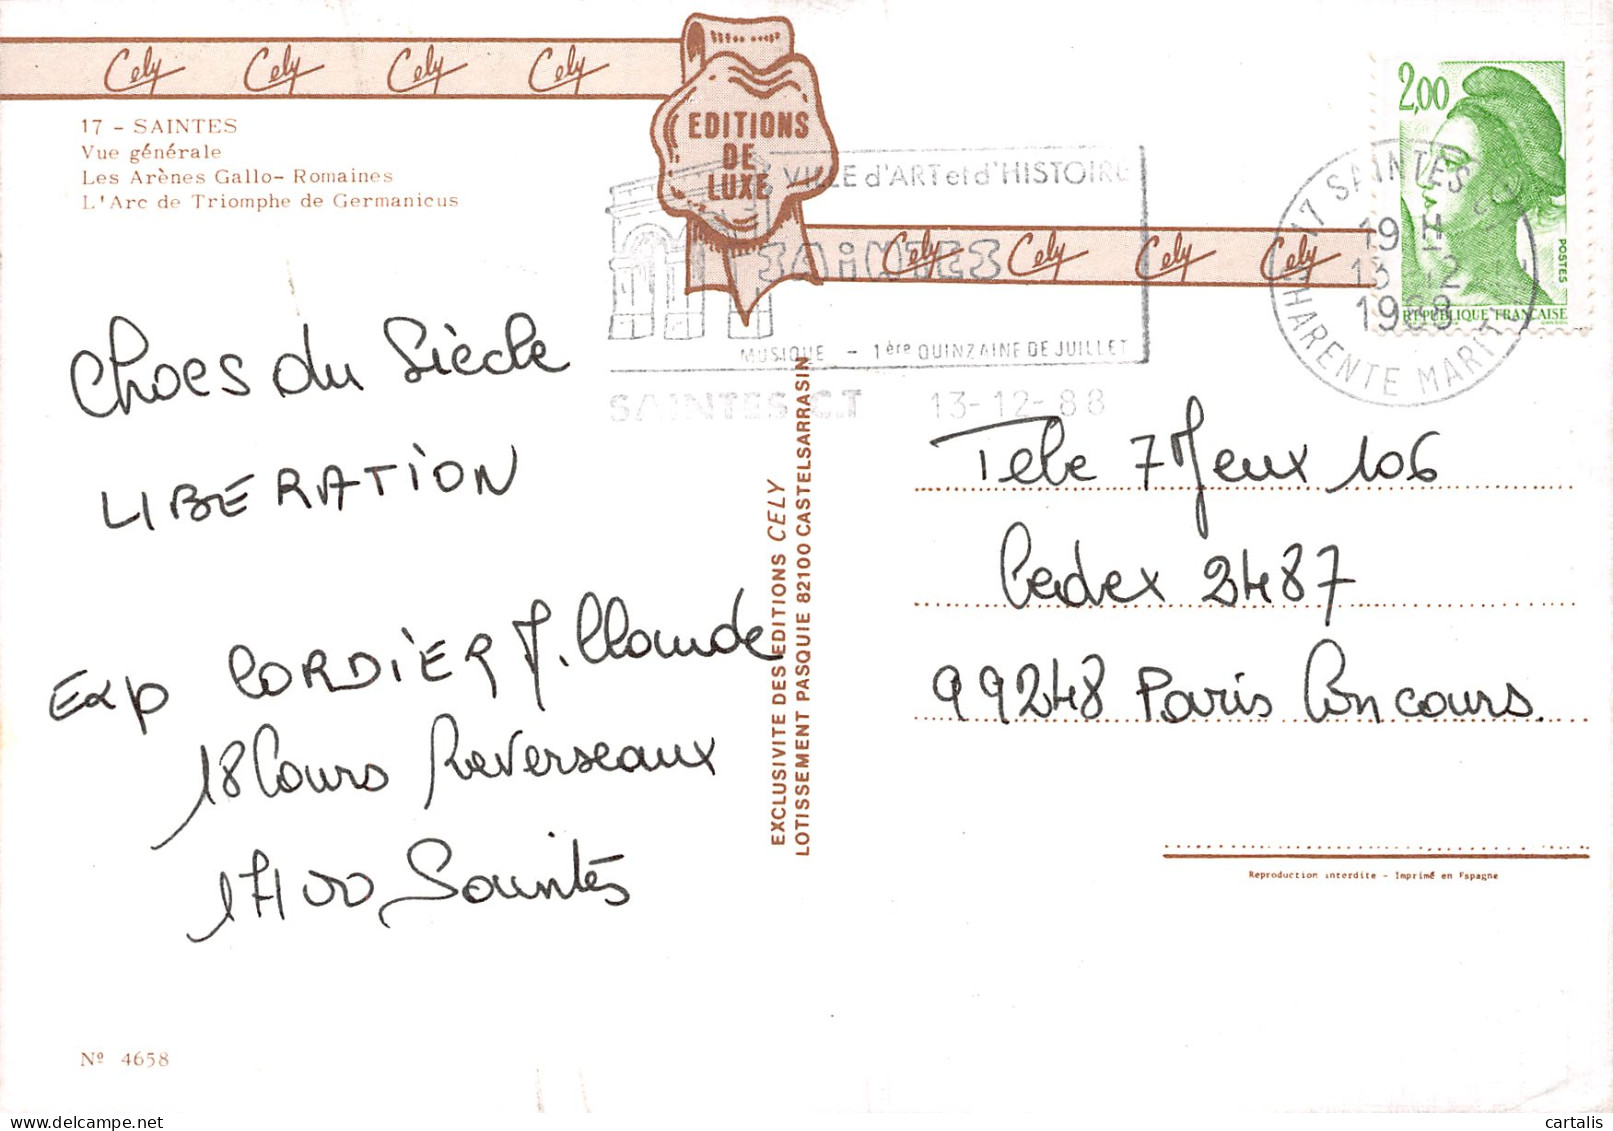 Cely Cely Cely Cely
EDITIONS
DE
LUXE
17 - SAINTES
Vue générale
Les Arènes Gallo- Romaines
L'Arc de Triomphe de Germanicus
VILLE d'ART et d'HISTOIRE
SAINTES
MUSIQUE - 1ère QUINZAINE DE JUILLET
SAINTES C.T 13-12-88
Cely Cely Cely Cely
2,00
POSTES
REPUBLIQUE FRANÇAISE
17 SAINTES
19 H
13 12
CHARENTE MARIT
Chocs du Siècle
LIBERATION
Exp CORDIER J. Claude
18 Cours Reverseaux
17100 Saintes
EXCLUSIVITE DES EDITIONS CELY
LOTISSEMENT PASQUIE 82100 CASTELSARRASIN
Tele 7 Jeux 106
Cedex 2487
99248 Paris Concours.
Reproduction interdite - Imprimé en Espagne
Nº 4658
cartalis